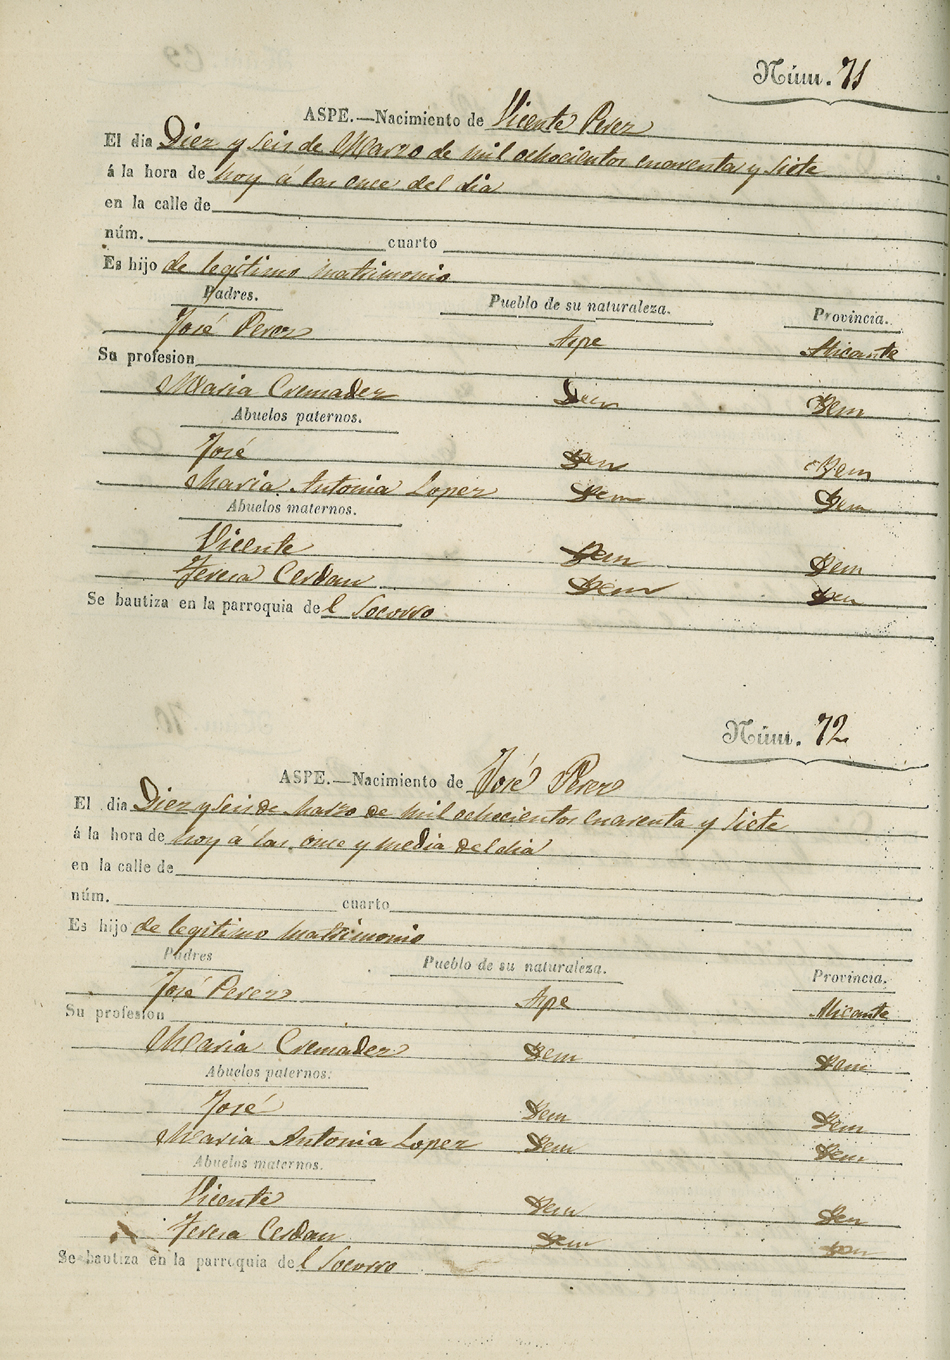 Núm. 71
ASPE.—Nacimiento de Vicente Perez
El dia Diez y seis de Marzo de mil ochocientos cuarenta y siete
á la hora de hoy á las once del dia
en la calle de
núm. cuarto
Es hijo de legitimo matrimonio
Padres. Pueblo de su naturaleza. Provincia.
José Perez Aspe Alicante
Su profesion
Maria Cremadez Idem Idem
Abuelos paternos.
José Idem Idem
Maria Antonia Lopez Idem Idem
Abuelos maternos.
Vicente Idem Idem
Teresa Cerdan Idem Idem
Se bautiza en la parroquia del Socorro
Núm. 72
ASPE.—Nacimiento de José Perez
El dia Diez y seis de Marzo de mil ochocientos cuarenta y siete
á la hora de hoy á las once y media del dia
en la calle de
núm. cuarto
Es hijo de legitimo matrimonio
Padres Pueblo de su naturaleza. Provincia.
José Perez Aspe Alicante
Su profesion
Maria Cremadez Idem Idem
Abuelos paternos.
José Idem Idem
Maria Antonia Lopez Idem Idem
Abuelos maternos.
Vicente Idem Idem
Teresa Cerdan Idem Idem
Se bautiza en la parroquia del Socorro